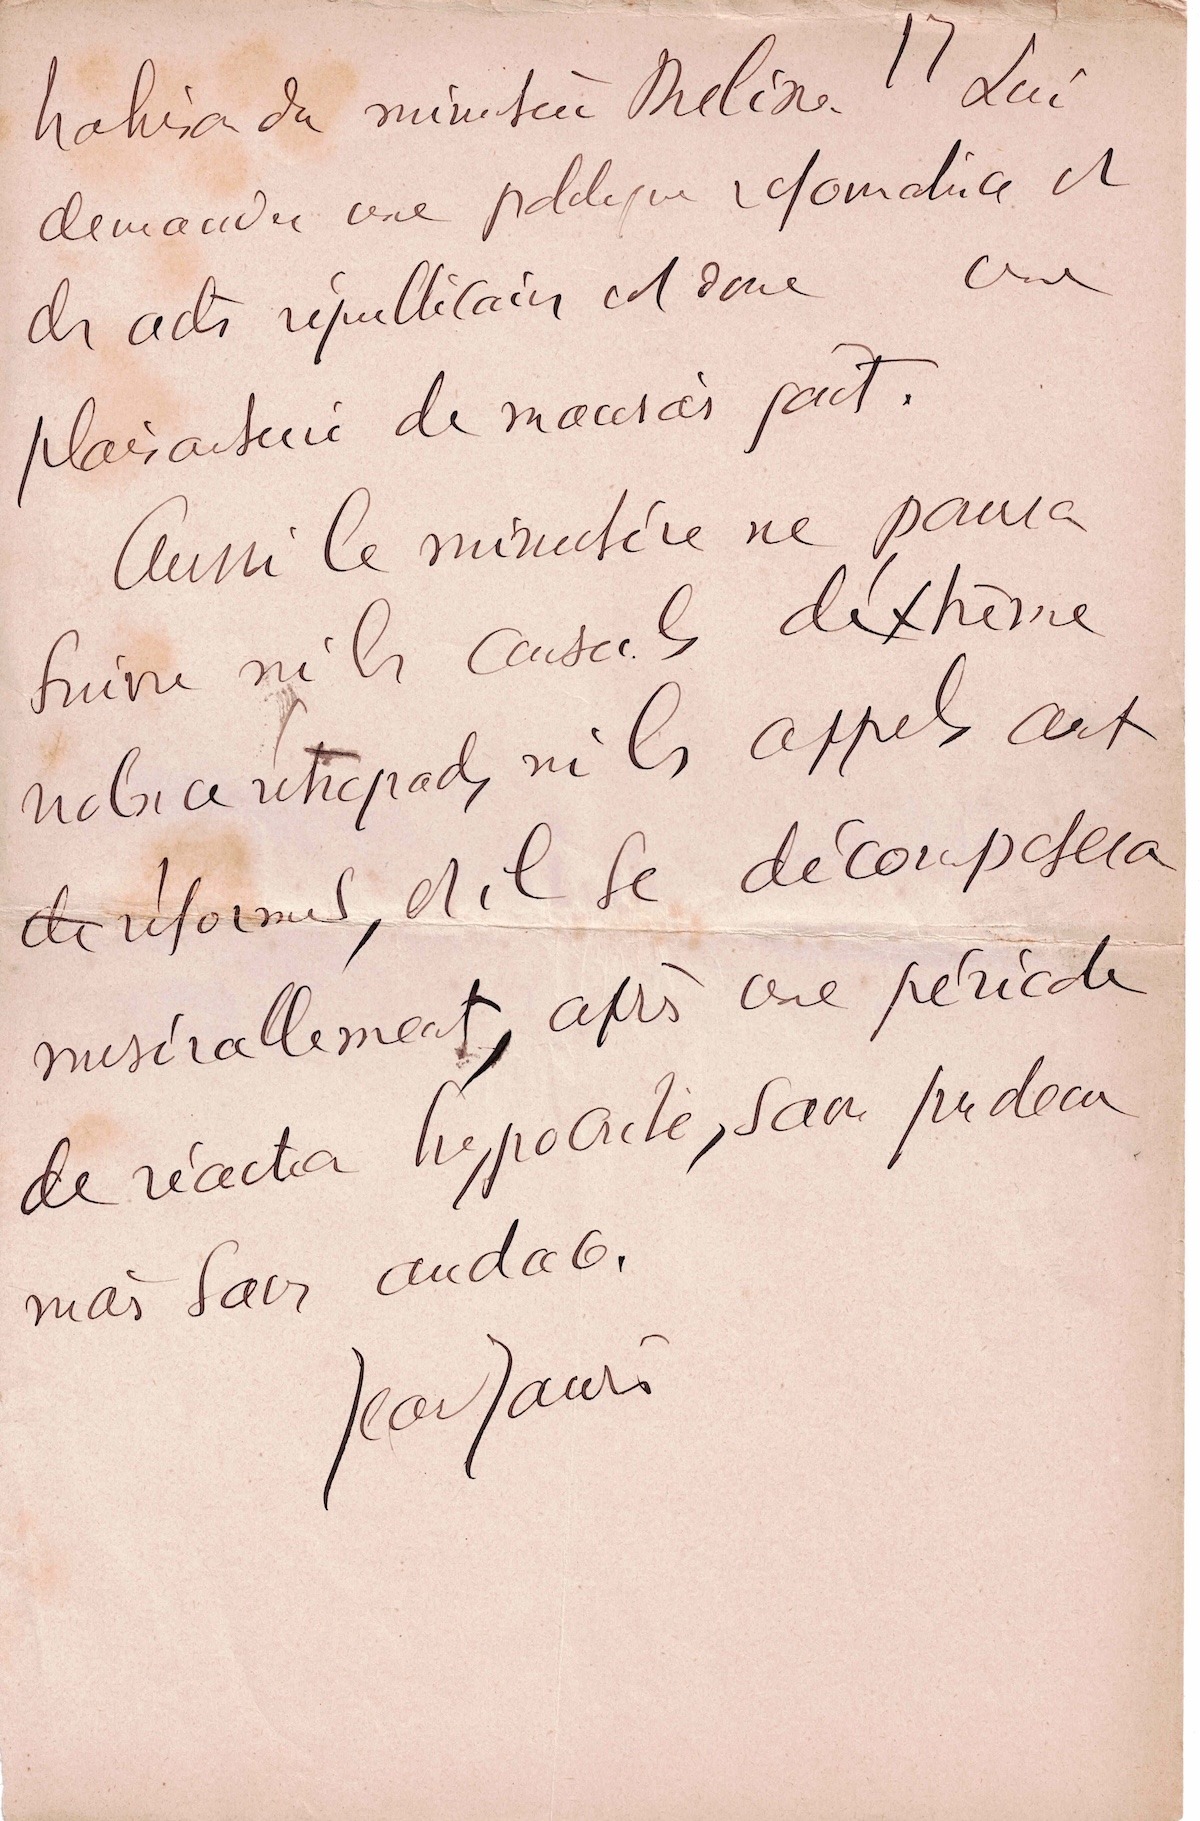 trahison du ministère Méline. 17 Lui
demander une politique réformatrice et
des actes républicains est donc une
plaisanterie de mauvais goût.
Aussi le ministère ne pourra
suivre ni les conseils d'extrême
ni les appels
de réformes, et il se décomposera
misérablement, après une période
de réaction hypocrite, sans pudeur
mais sans audace.
Jean Jaurès